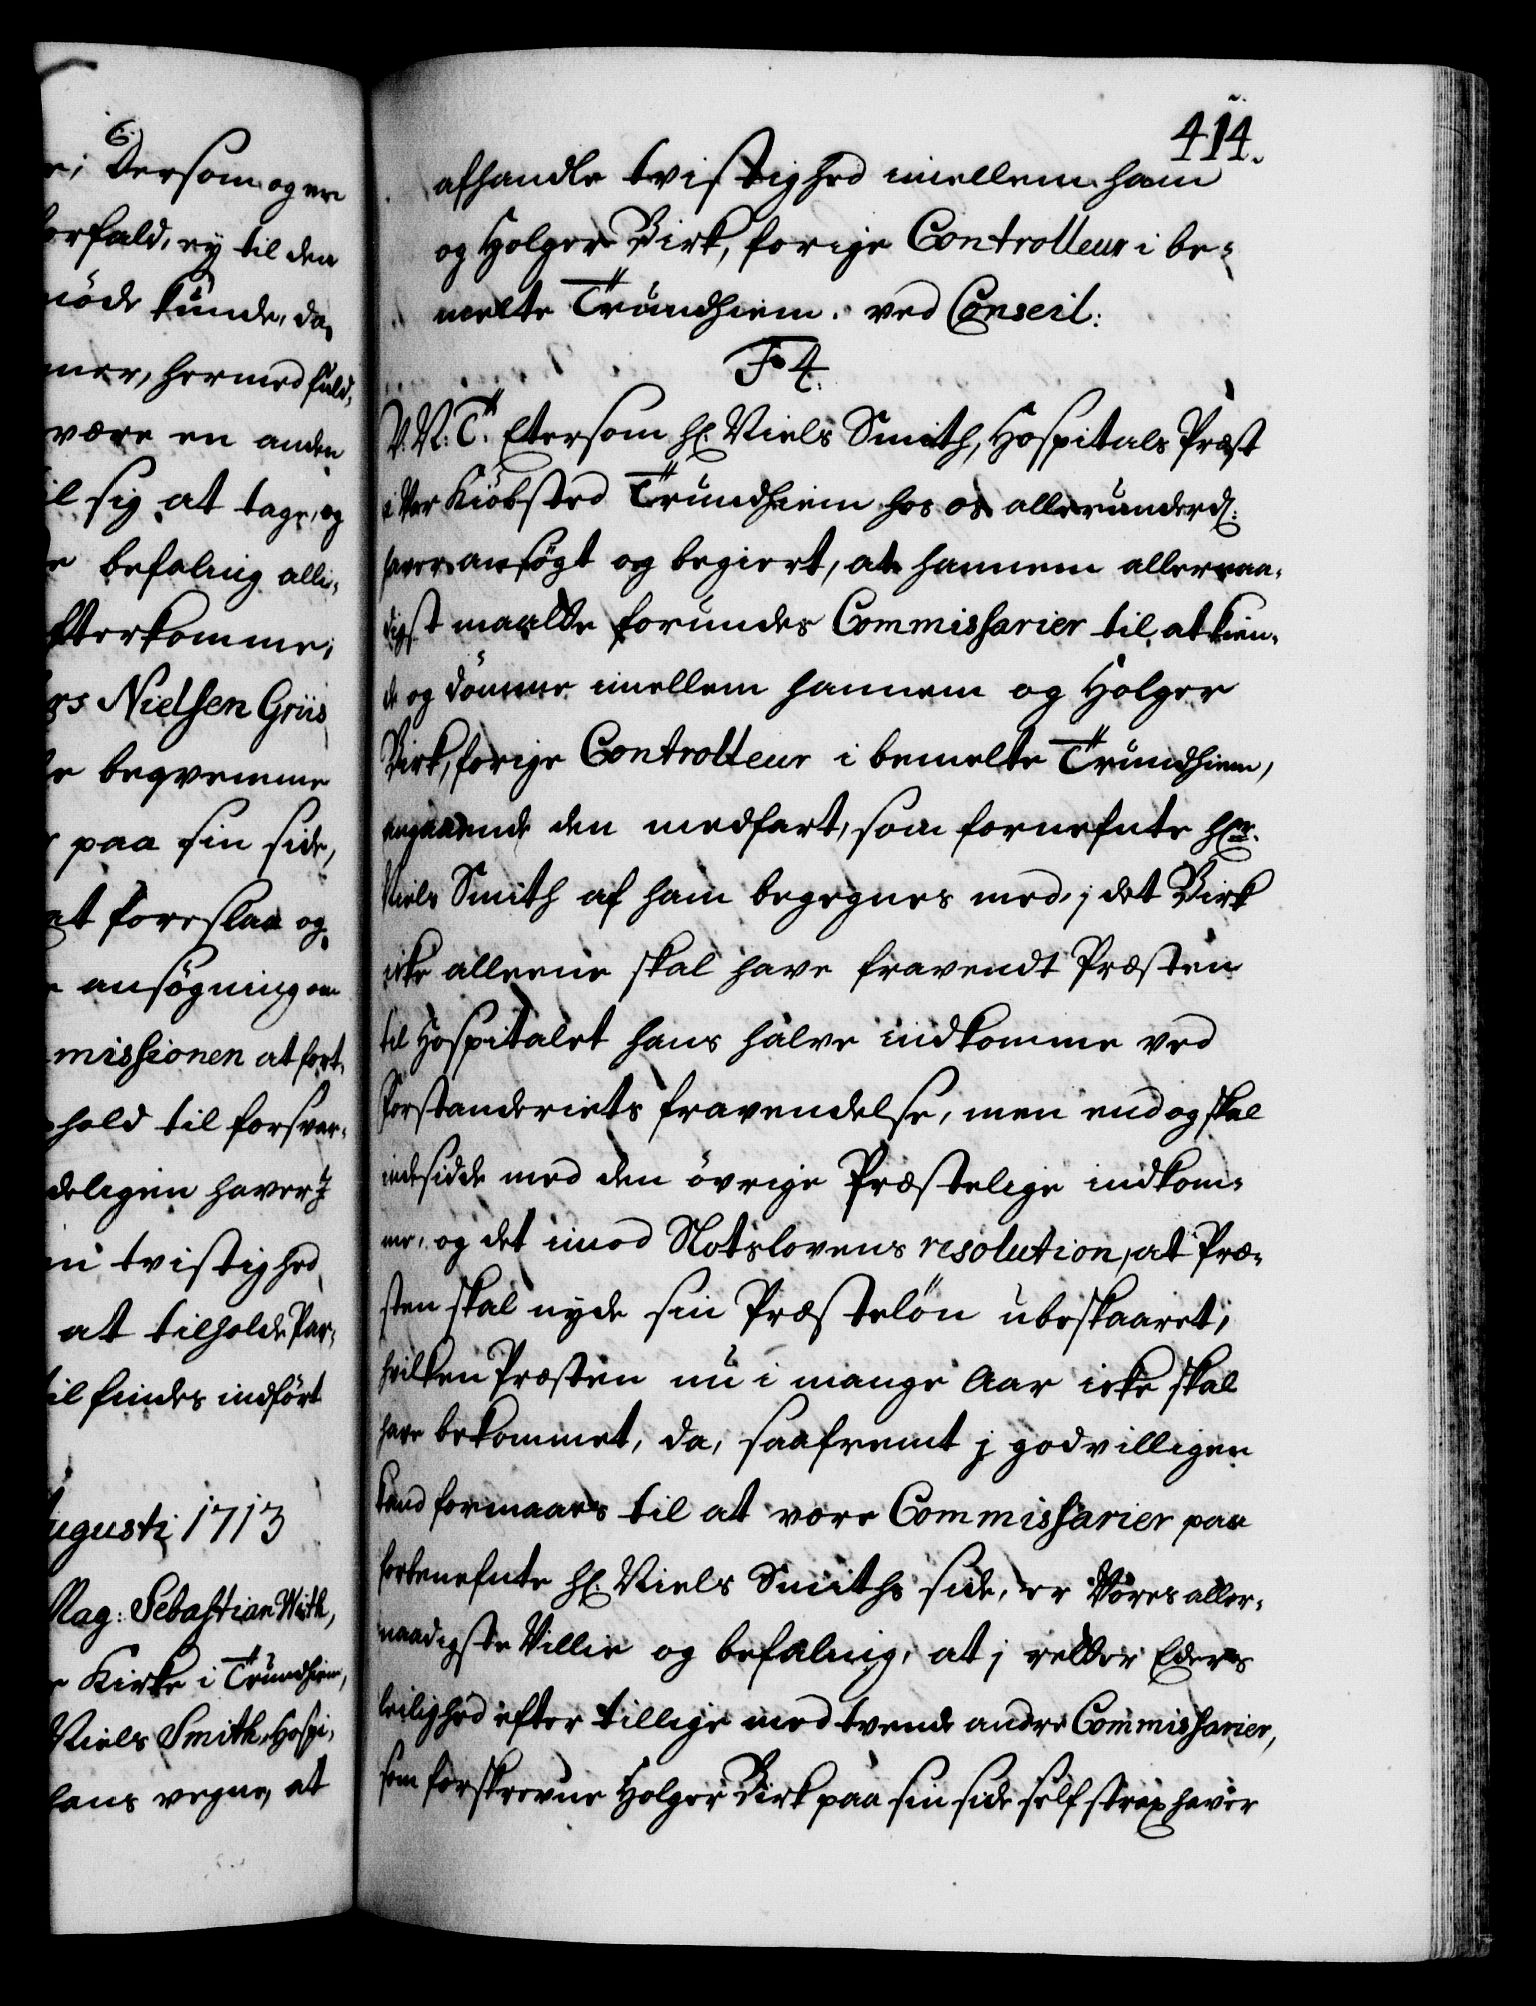 r; Dersom og en
forfald, ey til den
möde kunde, da
mer, hermed fuld,
være en anden
til sig at tage, og
befaling alle,
fterkomme;
Nielsen Griis
begvemme
paa sin side,
at foreslaa og
ansøgning om
missionen at fort,
hold til forsvar,
deligen haver
tvistighed
at tilholde Par,
til findes indfört
Augusti 1713
Mag: Sebastian With,
Kirke i Trundhiem,
Niels Smith, Hospi,
hans vegne, at
414.
afhandle tvistighed imellem ham
og Holger Birk, forige Controlleur i be-
melte Trundhiem. ved Conseil:
F 4.
V. N: C. Etersom hl. Niels Smith, Hospitals Præst
i Vor Kiöbsted Trundhiem hos os allerunderd:
haver ansögt og begiert, at hannem allernaa-
digst maatte forundes Commissarier til, at kien-
de og dömme imellem hannem og Holger
Birk, forige Controlleur i bemelte Trundhiem,
angaaende den medfart, som fornefnte hr.
Niels Smith af ham begegnes med, j det Birk
icke alleene skal have fravendt Præsten
til Hospitalet hans halve indkomme ved
Forstanderiets fravendelse, men endog skal
indesidde med den övrige Præstelige indkom-
me, og det imod Slotslovens resolution, at Præ-
sten skal nyde sin Præstelön ubeskaaret;
hvilken Præsten nu i mange Aar icke skal
have bekommet, da, saafremt j godvilligen
kand formaaes til at være Commissarier paa
forbenefnte hl. Niels Smiths side, er Vores aller-
naadigste Villie og befaling, at j retter Eders
leilighed efter tillige med tvende andre Commissarier,
som forskrevne Holger Birk paa sin side self strax haver